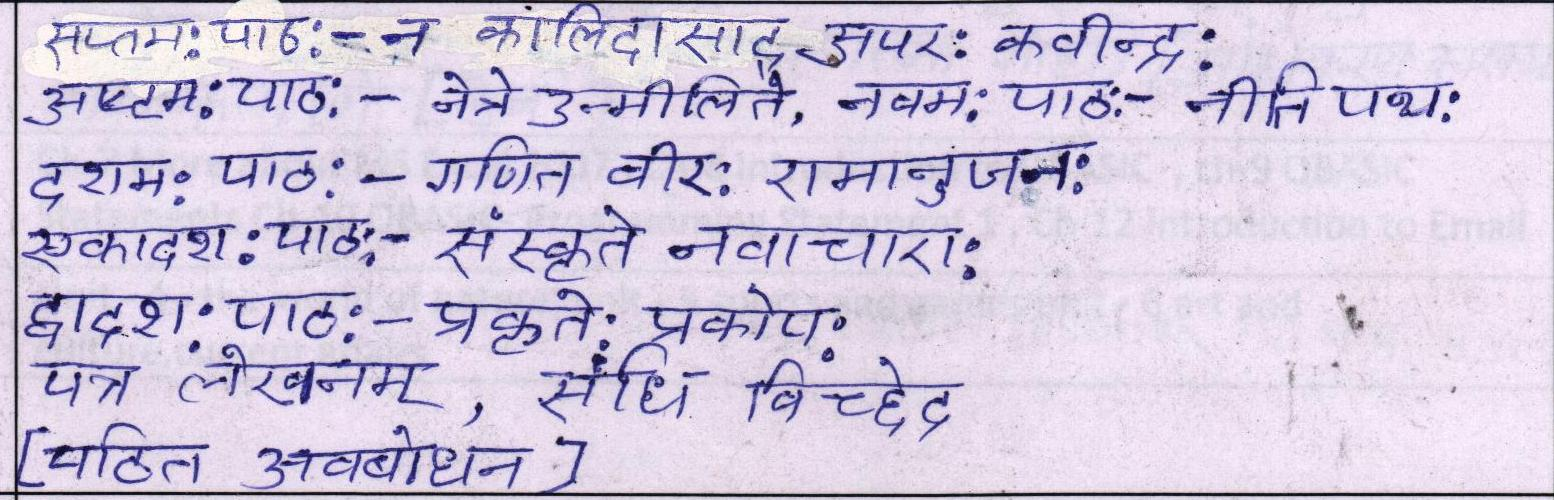 सप्तम: पाठ: - न कालिदासाद् अपर: कवीन्द्र:
अष्टम: पाठ: - नेत्रे उन्मीलिते, नवम: पाठ: - नीति पथ:
दशम: पाठ: - गणित वीर: रामानुजन:
एकादश: पाठ: - संस्कृते नवाचारा:
द्वादश: पाठ: - प्रकृते: प्रकोप:
पत्र लेखनम्, संधि विच्छेद
[पठित अवबोधन]